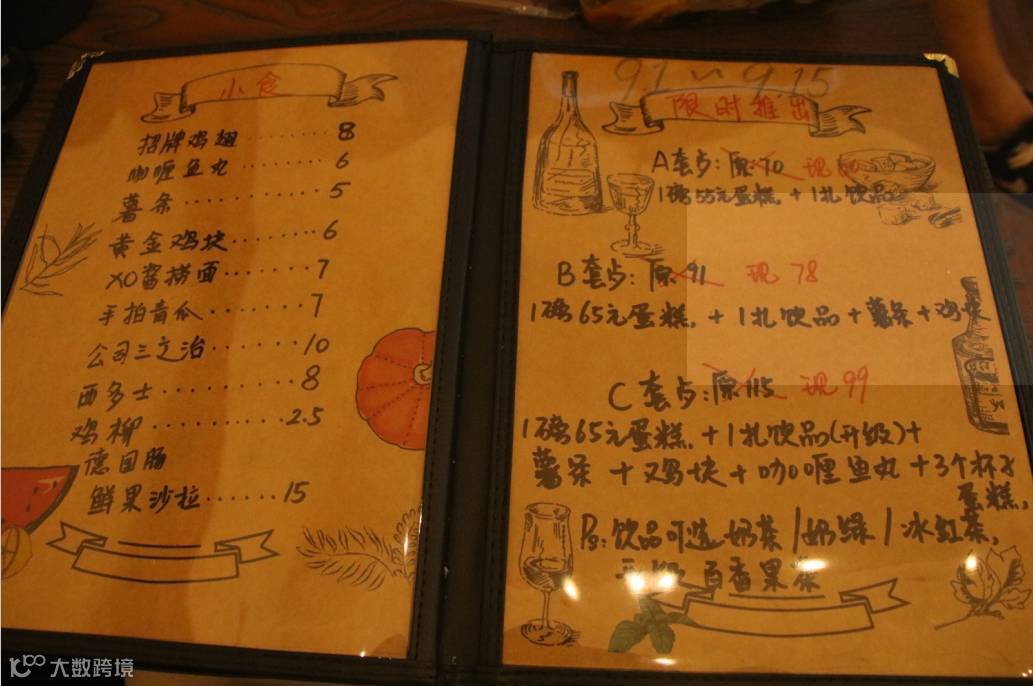 小食
招牌鸡翅 8
咖喱鱼丸 6
薯条 5
黄金鸡块 6
XO酱捞面 7
手拍青瓜 7
公司三文治 10
西多士 8
鸡柳 2.5
德国肠
鲜果沙拉 15
9.1 ~ 9.15
限时推出
A套歺:原70 现60
1磅55元蛋糕.+1扎饮品
B套歺:原91 现78
1磅65元蛋糕.+1扎饮品+薯条+鸡块
C套歺:原115 现99
1磅65元蛋糕.+1扎饮品(升级)+
薯条+鸡块+咖喱鱼丸+3个杯子
蛋糕,
Ps:饮品可选奶茶/奶绿/冰红茶,
百香果茶
大数跨境